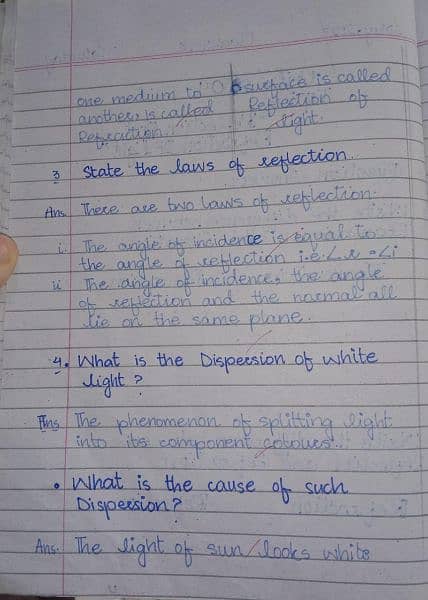 one medium to
another, is called
Refraction.
surface is called
Reflection of
light.
3 State the laws of reflection.
Ans There are two laws of reflection:
i. The angle of incidence is equal to
the angle of reflection i.e. ∠r = ∠i
ii The angle of incidence, the angle
of reflection and the normal all
lie on the same plane.
4. What is the Dispersion of white
light?
Ans The phenomenon of splitting light
into its component colours.
• What is the cause of such
Dispersion?
Ans. The light of sun looks white